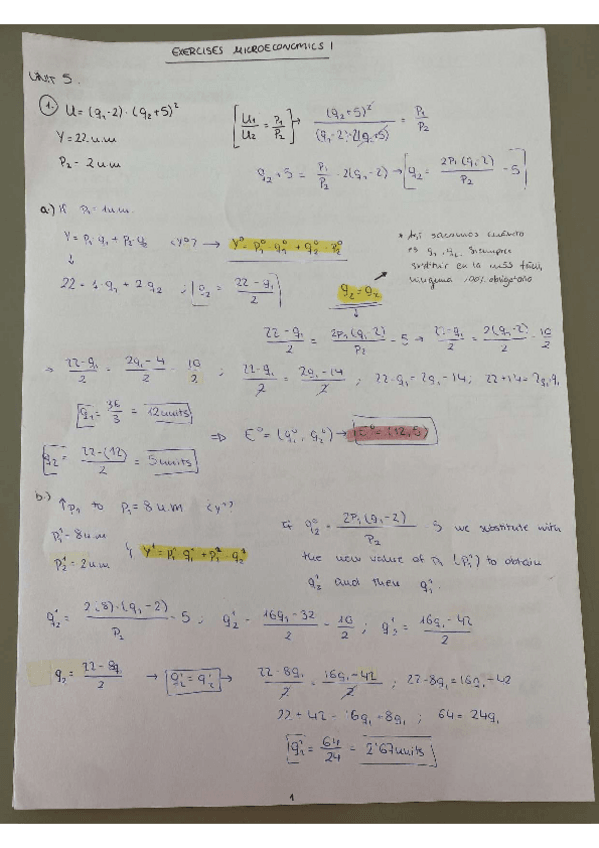 EXERCISES MICROECONOMICS I
UNIT 5.
1. U = (q1-2) · (q2+5)²
[U1/U2 = P1/P2] → (q2+5)²/((q1-2)·2(q2+5)) = P1/P2
Y = 22 u.m
P2 = 2 u.m
q2+5 = P1/P2 · 2(q1-2) → [q2 = 2P1(q1-2)/P2 - 5]
a.) If P1 = 1 u.m.
Y = P1·q1 + P2·q2 ¿Y⁰? → Y⁰ = P1⁰·q1⁰ + q2⁰·P2⁰
* Así sacamos cuánto
es q1, q2. Siempre
sustituir en la misma
100% obligatorio
↓
22 = 1·q1 + 2q2 ; q2 = (22-q1)/2
q2 = q2
(22-q1)/2 = 2P1(q1-2)/P2 - 5 → (22-q1)/2 = 2(q1-2)/2 - 10/2
→ (22-q1)/2 = (2q1-4)/2 - 10/2 ; (22-q1)/2 = (2q1-14)/2 ; 22-q1 = 2q1-14 ; 22+14 = 2q1+q1
q1 = 36/3 = 12 units
⇒ E⁰ = (q1⁰, q2⁰) → E⁰ = (12,5)
q2 = (22-(12))/2 = 5 units
b.) ↑P1 to P1 = 8 u.m ¿Y⁰?
P1¹ = 8 u.m
P2¹ = 2 u.m
Y¹ = P1¹ q1¹ + P2¹ · q2¹
If q2⁰ = 2P1(q1-2)/P2 - 5 we substitute with
the new value of P1 (P1¹) to obtain
q2¹ and then q1¹.
q2¹ = 2(8)·(q1-2)/P2 - 5 ; q2¹ = (16q1-32)/2 - 10/2 ; q2¹ = (16q1-42)/2
q2 = (22-8q1)/2 → q2¹ = q2¹ → (22-8q1)/2 = (16q1-42)/2 ; 22-8q1 = 16q1-42
22+42 = 16q1+8q1 ; 64 = 24q1
q1¹ = 64/24 = 2'67 units
1